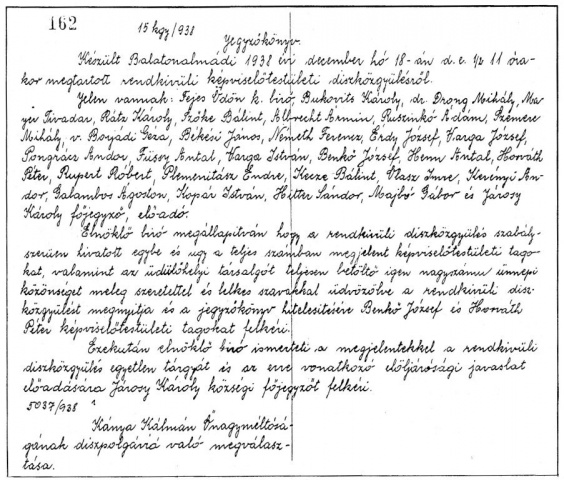 162
15 kgy/938
Jegyzőkönyv.
Készült Balatonalmádi 1938 évi december hó 18-án d.e. ½ 11 óra-
kor megtartott rendkivüli képviselőtestületi diszközgyülésről.
Jelen vannak: Fejes Ödön k. biró, Bukovits Károly, dr. Drong Mihály, Ma-
yer Tivadar, Rátz Károly, Szőke Bálint, Albrecht Ármin, Ruszinkó Ádám, Szemere
Mihály, v. Bozjádi Géza, Békési János, Németh Ferenc, Érdy József, Varga József,
Pongrácz Andor, Füssy Antal, Varga István, Benkő József, Henn Antal, Horváth
Péter, Rupert Róbert, Plemenitász Endre, Kecze Bálint, Vlasz Imre, Kerényi An-
dor, Galambos Ágoston, Kopár István, Hitter Sándor, Majbó Gábor és Járosy
Károly főjegyző, előadó.
Elnöklő biró megállapitván hogy a rendkivüli diszközgyülés szabály-
szerüen hivatott egybe és ugy a teljes számban megjelent képviselőtestületi tago-
kat, valamint az üdülőhelyi társalgót teljesen betöltő igen nagyszámu ünnepi
közönséget meleg szeretettel és lelkes szavakkal üdvözölve a rendkivüli disz-
közgyülést megnyitja és a jegyzőkönyv hitelesitésére Benkő József és Horváth
Péter képviselőtestületi tagokat felkéri.
Ezekután elnöklő biró ismerteti a megjelentekkel a rendkivüli
diszközgyülés egyetlen tárgyát és az erre vonatkozó elöljárósági javaslat
előadására Járosy Károly községi főjegyzőt felkéri.
5037/938
Kánya Kálmán Őnagyméltósá-
gának diszpolgárrá való megválasz-
tása.